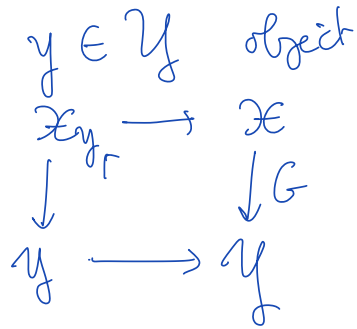 y ∈ 𝒴 object
𝒳_y ⟶ 𝒳
↓ ↓ G
y ⟶ 𝒴